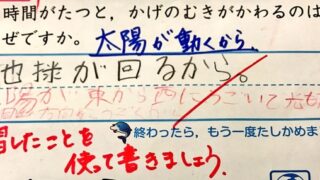 時間がたつと、かげのむきがかわるのは
ぜですか。太陽が動くから。
地球が回るから。
陽が東から西にうごいて
習したことを
終わったら、もう一度たしかめま
使って書きましょう。